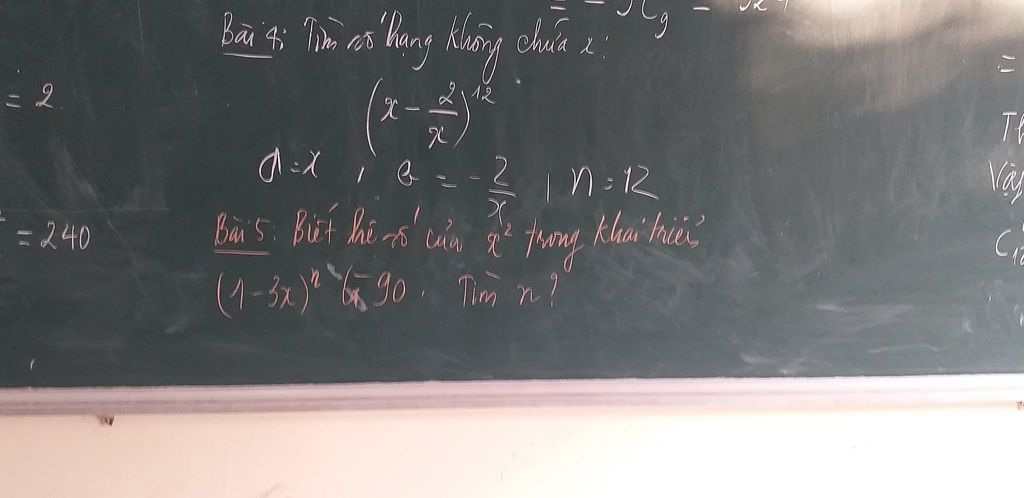 = 2
= 240
Bài 4: Tìm số hạng không chứa x:
(x - 2/x)^12
a = x , b = -2/x , n = 12
Bài 5: Biết hệ số của x² trong khai triển
(1-3x)^n 90. Tìm n?
=
Vậy